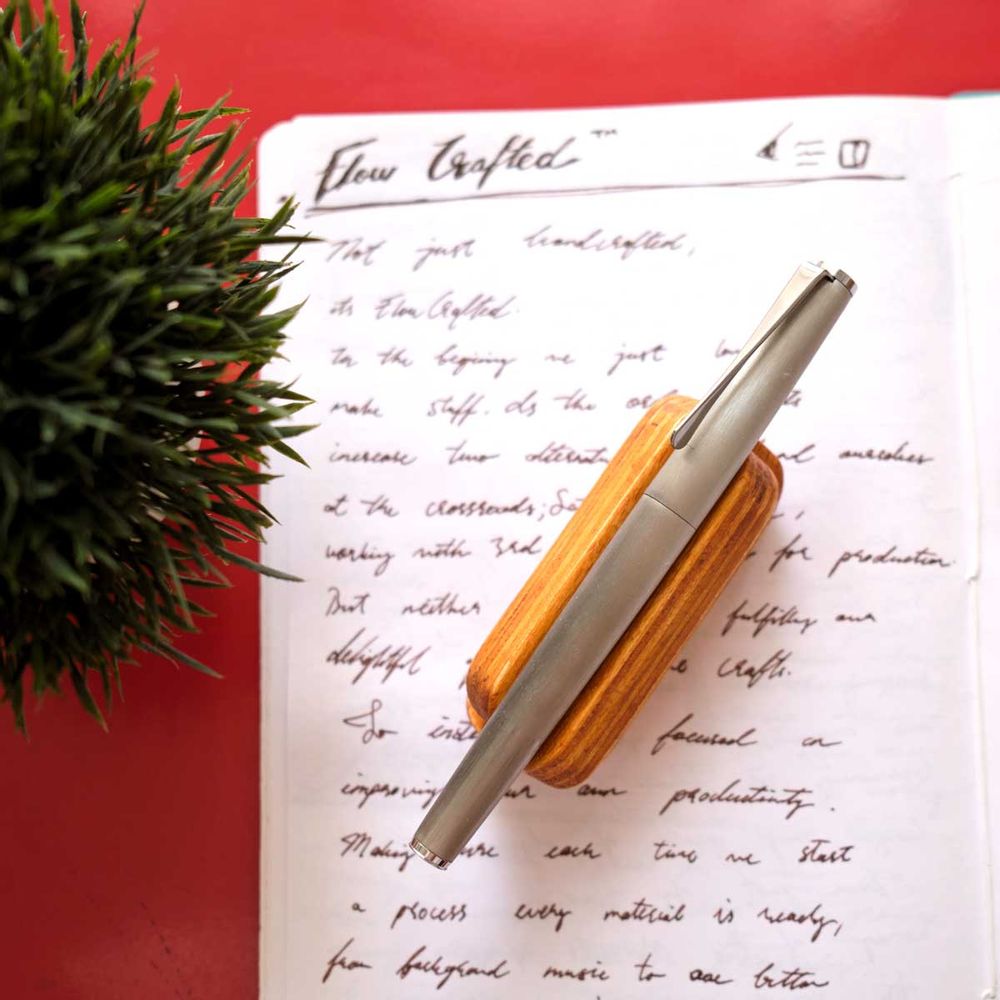 Flow Crafted™
Not just handcrafted,
its FlowCrafted.
In the begining we just
make stuff. As the
increase two alternati ourselves
at the crossroads;
working with 3rd for production.
But neither fulfilling our
delightful crafts.
So inste focused on
improving our own productivity.
Making sure each time we start
a process every material is ready,
from background music to our better